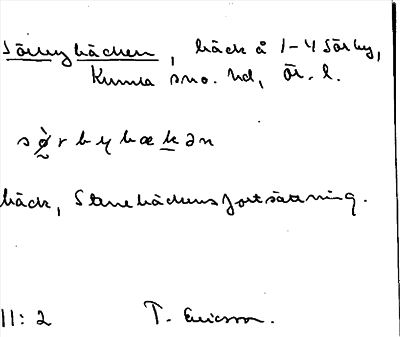 Sörbybäcken, bäck å 1-4 Sörby,
Kumla sn o. hd, Ör. l.
sø̀rbybækən
bäck, Stenebäckens fortsättning.
11:2 T. Ericsson.